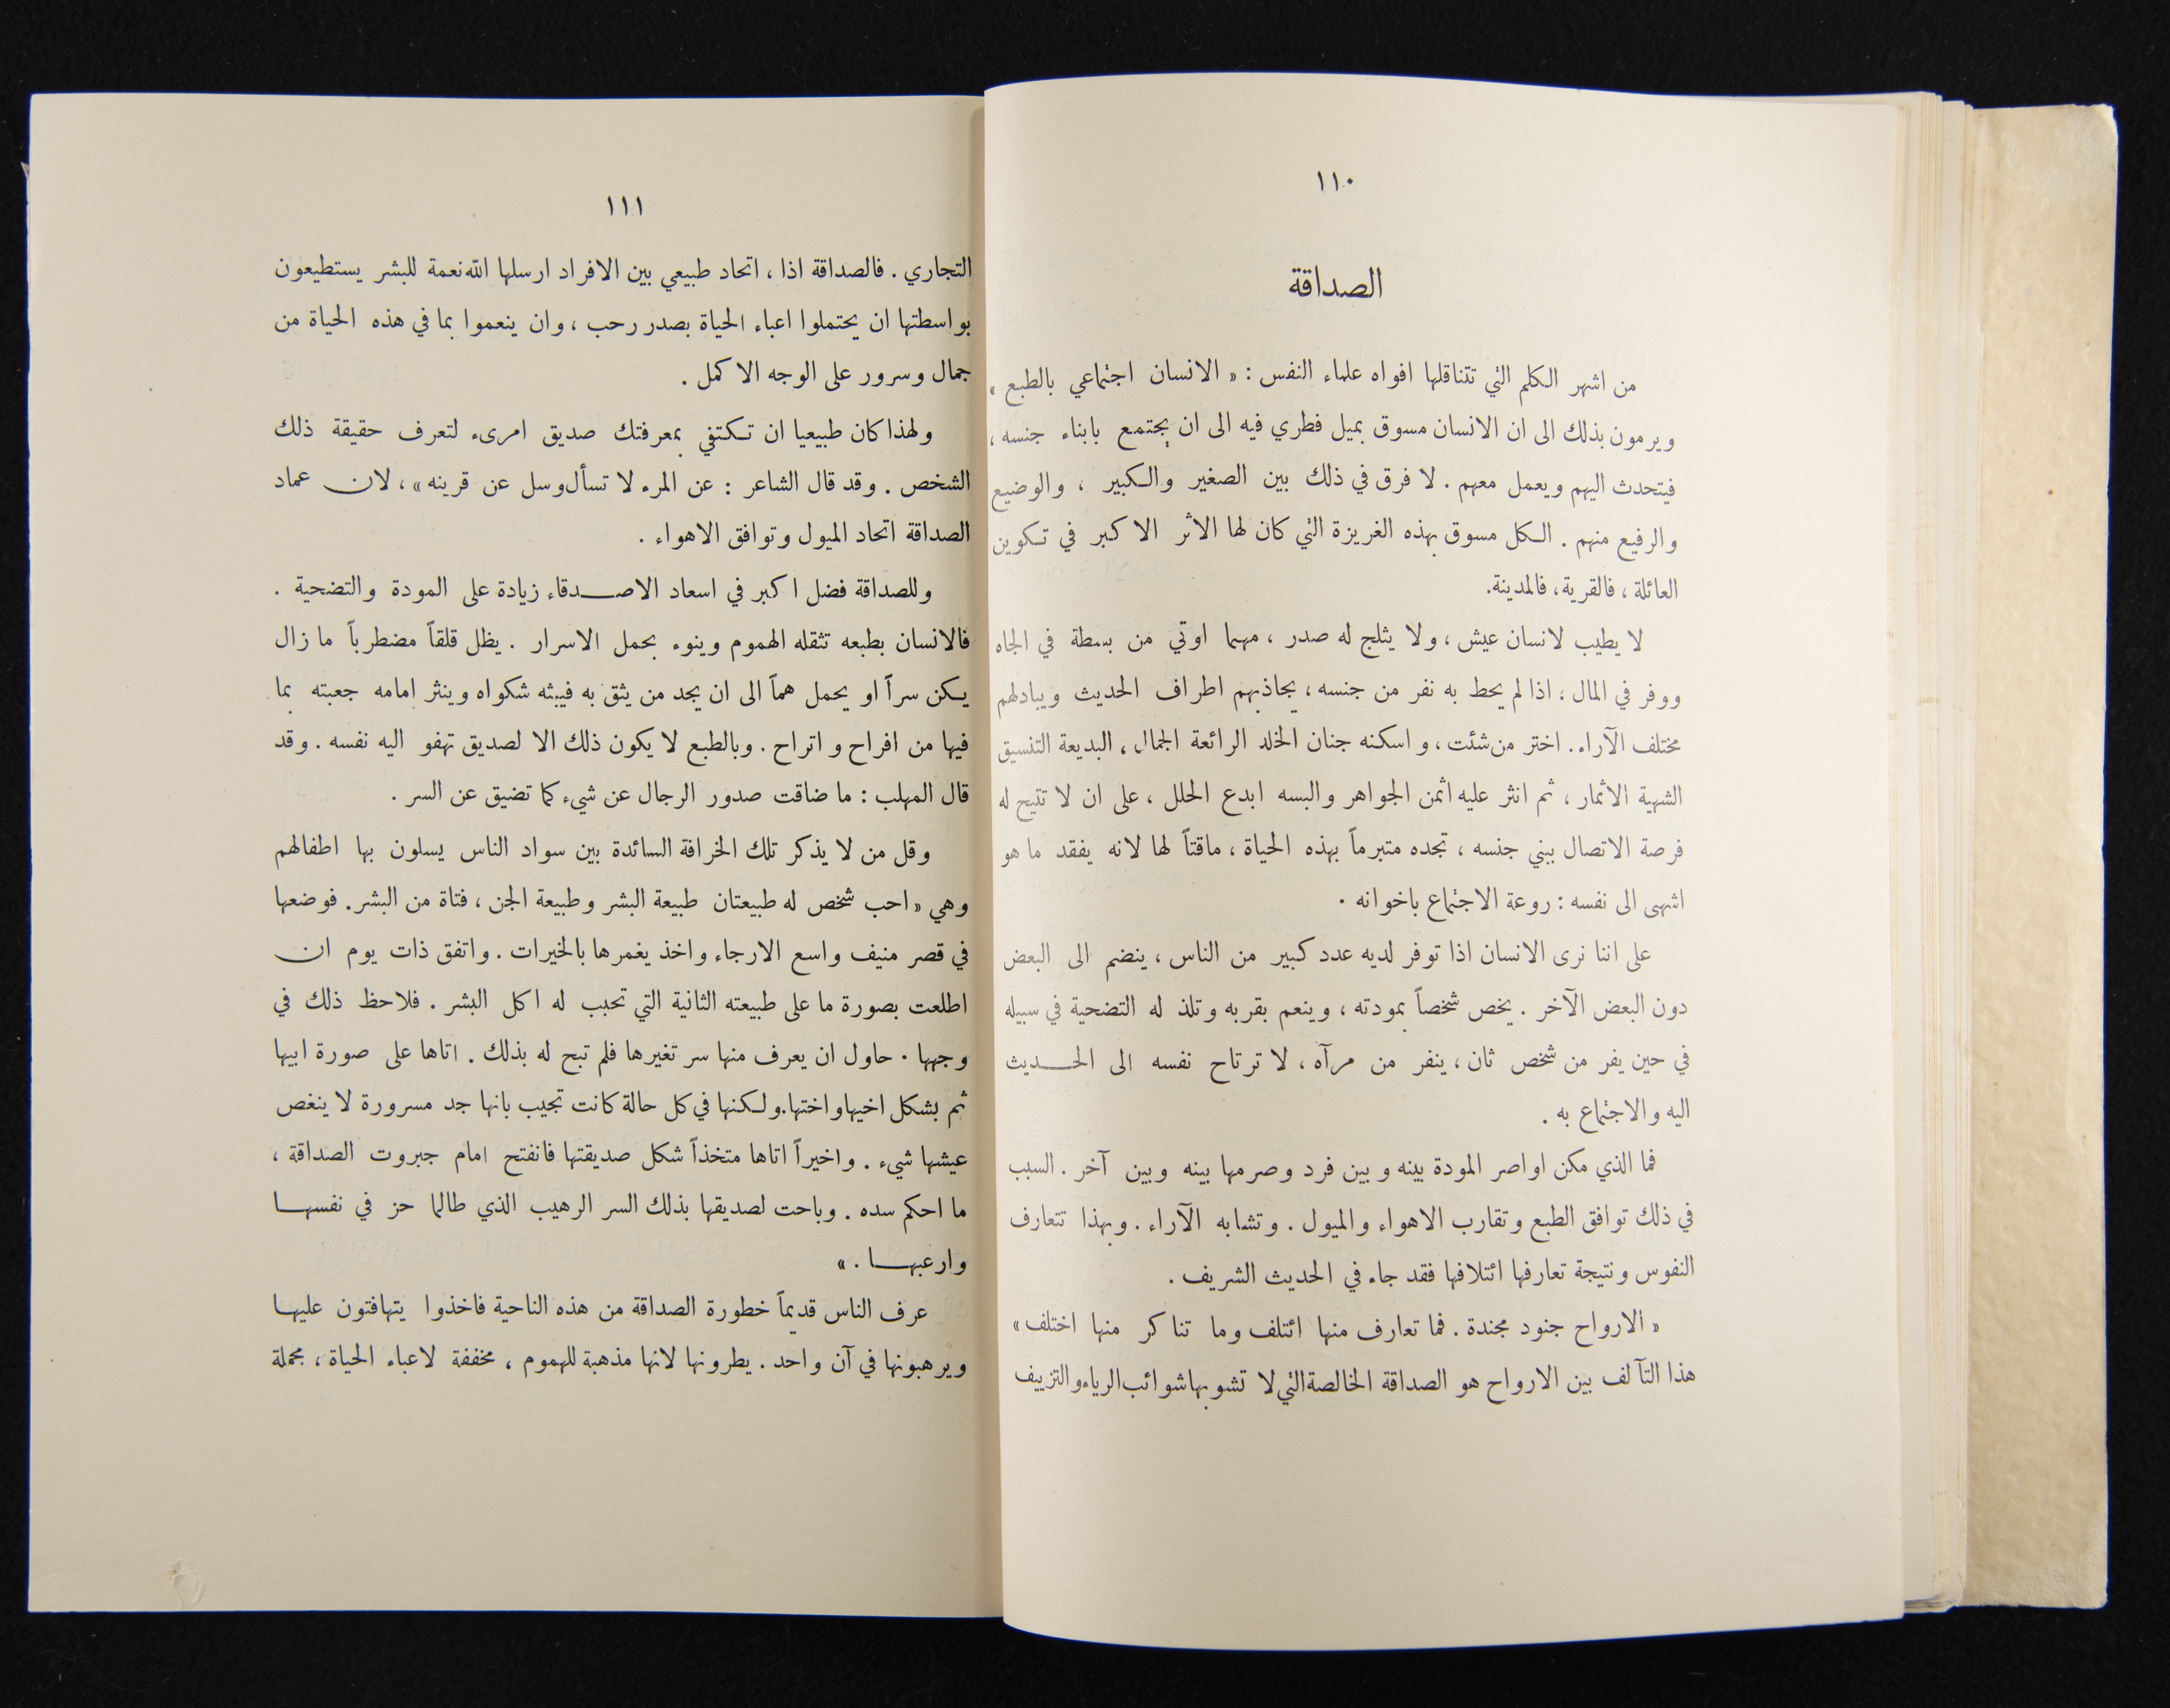 ١١٠
الصداقة
من اشهر الكلم التي تتناقلها افواه علماء النفس : « الانسان اجتماعي بالطبع »
ويرمون بذلك الى ان الانسان مسوق بميل فطري فيه الى ان يجتمع بابناء جنسه ،
فيتحدث اليهم ويعمل معهم . لا فرق في ذلك بين الصغير والكبير ، والوضيع
والرفيع منهم . الكل مسوق بهذه الغريزة التي كان لها الاثر الاكبر في تكوين
العائلة ، فالقرية ، فالمدينة.
لا يطيب لانسان عيش ، ولا يثلج له صدر ، مهما اوتي من بسطة في الجاه
ووفر في المال ؛ اذا لم يحط به نفر من جنسه ، يجاذبهم اطراف الحديث ويبادلهم
مختلف الآراء . اختر من شئت ، واسكنه جنان الخلد الرائعة الجمال ، البديعة التنسيق
الشهية الاثمار ، ثم انثر عليه اثمن الجواهر والبسه ابدع الحلل ، على ان لا تتيح له
فرصة الاتصال ببني جنسه ، تجده متبرماً بهذه الحياة ، ماقتاً لها لانه يفقد ما هو
اشهى الى نفسه : روعة الاجتماع باخوانه .
على اننا نرى الانسان اذا توفر لديه عدد كبير من الناس ، ينضم الى البعض
دون البعض الآخر . يخص شخصاً بمودته ، وينعم بقربه وتلذ له التضحية في سبيله
في حين يفر من شخص ثان ، ينفر من مرآه ، لا ترتاح نفسه الى الحديث
اليه والاجتماع به .
فما الذي مكن اواصر المودة بينه وبين فرد وصرمها بينه وبين آخر . السبب
في ذلك توافق الطبع وتقارب الاهواء والميول . وتشابه الآراء . وبهذا تتعارف
النفوس ونتيجة تعارفها ائتلافها فقد جاء في الحديث الشريف .
« الارواح جنود مجندة . فما تعارف منها ائتلف وما تناكر منها اختلف »
هذا التآلف بين الارواح هو الصداقة الخالصة التي لا تشوبها شوائب الرياء والتزييف
١١١
التجاري . فالصداقة اذا ، اتحاد طبيعي بين الافراد ارسلها الله نعمة للبشر يستطيعون
بواسطتها ان يحتملوا اعباء الحياة بصدر رحب ، وان ينعموا بما في هذه الحياة من
جمال وسرور على الوجه الاكمل .
ولهذا كان طبيعيا ان تكتفي بمعرفتك صديق امرىء لتعرف حقيقة ذلك
الشخص . وقد قال الشاعر : عن المرء لا تسأل وسل عن قرينه » ، لان عماد
الصداقة اتحاد الميول وتوافق الاهواء .
وللصداقة فضل اكبر في اسعاد الاصدقاء زيادة على المودة والتضحية .
فالانسان بطبعه تثقله الهموم وينوء بحمل الاسرار . يظل قلقاً مضطرباً ما زال
يكن سراً او يحمل هماً الى ان يجد من يثق به فيبثه شكواه وينثر امامه جعبته بما
فيها من افراح واتراح . وبالطبع لا يكون ذلك الا لصديق تهفو اليه نفسه . وقد
قال المهلب : ما ضاقت صدور الرجال عن شيء كما تضيق عن السر .
وقل من لا يذكر تلك الخرافة السائدة بين سواد الناس يسلون بها اطفالهم
وهي « احب شخص له طبيعتان طبيعة البشر وطبيعة الجن ، فتاة من البشر . فوضعها
في قصر منيف واسع الارجاء واخذ يغمرها بالخيرات . واتفق ذات يوم ان
اطلعت بصورة ما على طبيعته الثانية التي تحبب له اكل البشر . فلاحظ ذلك في
وجهها . حاول ان يعرف منها سر تغيرها فلم تبح له بذلك . اتاها على صورة ابيها
ثم بشكل اخيها واختها . ولكنها في كل حالة كانت تجيب بانها جد مسرورة لا ينغص
عيشها شيء . واخيراً اتاها متخذاً شكل صديقتها فانفتح امام جبروت الصداقة ،
ما احكم سده . وباحت لصديقها بذلك السر الرهيب الذي طالما حز في نفسها
وارعبها . »
عرف الناس قديماً خطورة الصداقة من هذه الناحية فاخذوا يتهافتون عليها
ويرهبونها في آن واحد . يطرونها لانها مذهبة للهموم ، مخففة لاعباء الحياة ، مجملة